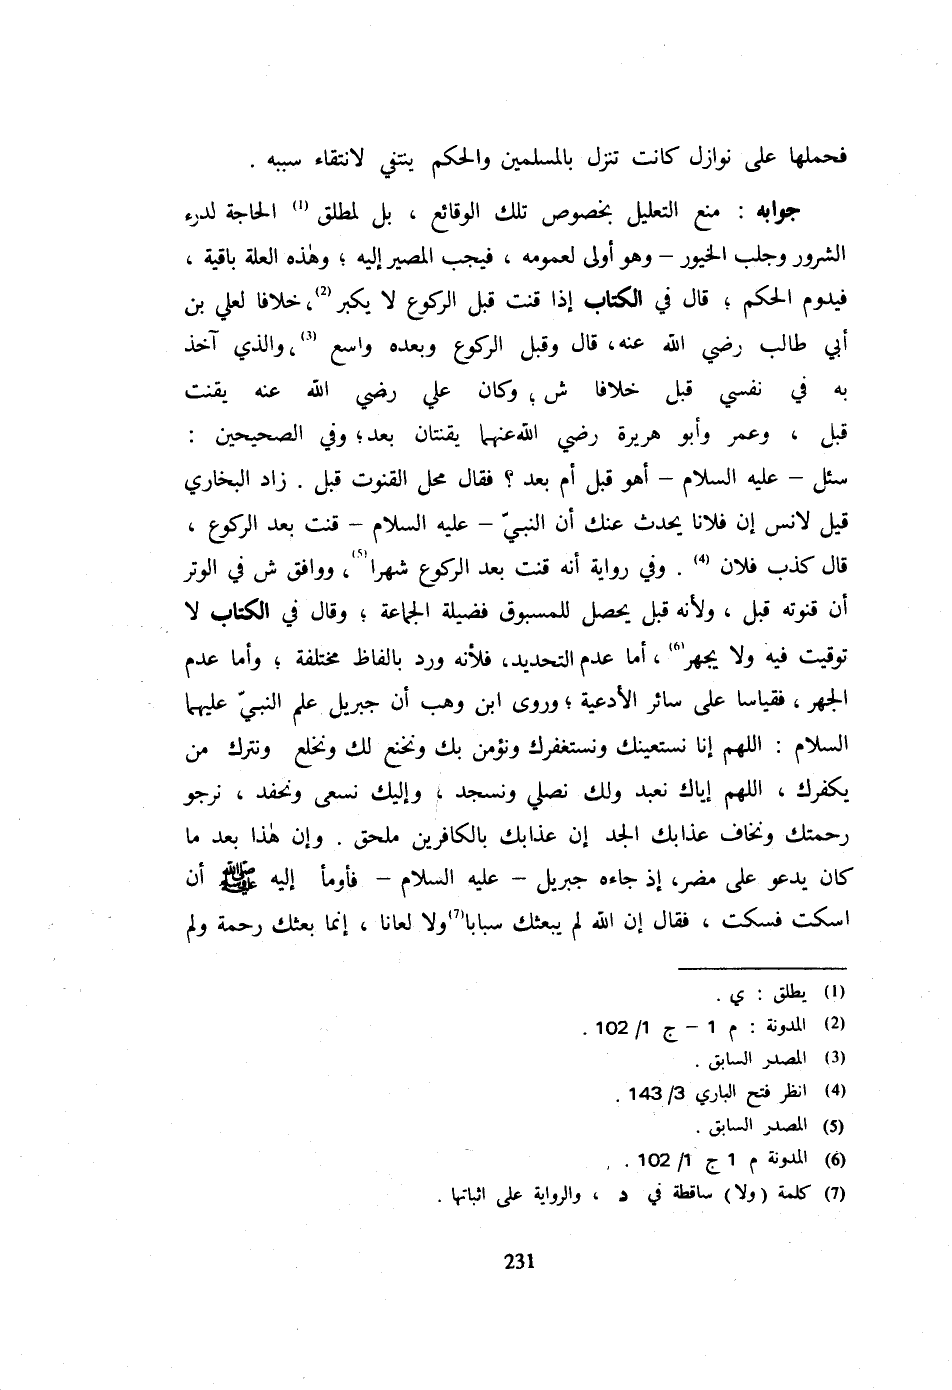 فحملها على نوازل كانت تنزل بالمسلمين والحكم ينتفي لانتقاء سببه .
جوابه : منع التعليل بخصوص تلك الوقائع ، بل لمطلق (1) الحاجة لدرء
الشرور وجلب الخيور – وهو أولى لعمومه ، فيجب المصير إليه ؛ وهٰذه العلة باقية ،
فيدوم الحكم ؛ قال في الكتاب إذا قنت قبل الركوع لا يكبر (2)، خلافا لعلي بن
أبي طالب رضي الله عنه، قال وقبل الركوع وبعده واسع (3)، والذي آخذ
به في نفسي قبل خلافا ش ؛ وكان علي رضي الله عنه يقنت
قبل ، وعمر وأبو هريرة رضي الله عنهما يقنتان بعد؛ وفي الصحيحين :
سئل – عليه السلام – أهو قبل أم بعد ؟ فقال محل القنوت قبل . زاد البخاري
قيل لانس إن فلانا يحدث عنك أن النبيّ – عليه السلام – قنت بعد الركوع ،
قال كذب فلان (4) . وفي رواية أنه قنت بعد الركوع شهرا (5)، ووافق ش في الوتر
أن قنوته قبل ، ولأنه قبل يحصل للمسبوق فضيلة الجماعة ؛ وقال في الكتاب لا
توقيت فيه ولا يجهر (6) ، أما عدم التحديد، فلأنه ورد بالفاظ مختلفة ؛ وأما عدم
الجهر ، فقياسا على سائر الأدعية ؛ وروى ابن وهب أن جبريل علم النبيّ عليهما
السلام : اللهم إنا نستعينك ونستغفرك ونؤمن بك ونخنع لك ونخلع ونترك من
يكفرك ، اللهم إياك نعبد ولك نصلي ونسجد ، وإليك نسعى ونحفد ، نرجو
رحمتك ونخاف عذابك الجد إن عذابك بالكافرين ملحق . وإن هٰذا بعد ما
كان يدعو على مضر، إذ جاءه جبريل – عليه السلام – فأومأ إليه ﷺ أن
اسكت فسكت ، فقال إن الله لم يبعثك سبابا (7) ولا لعانا ، إنما بعثك رحمة ولم
(1) يطلق : ي .
(2) المدونة : م 1 – ج 1/ 102 .
(3) المصدر السابق .
(4) انظر فتح الباري 3/ 143 .
(5) المصدر السابق .
(6) المدونة م 1 ج 1/ 102 .
(7) كلمة (ولا) ساقطة في د ، والرواية على اثباتها .
231